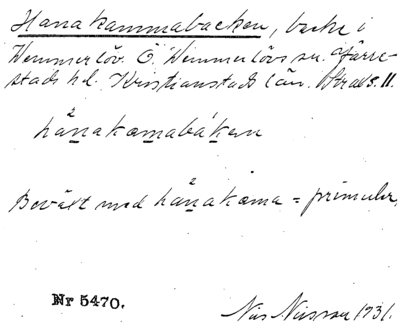 Hanakammabacken, backe i
Vemmerlöv. Ö. Vemmerlövs sn. Järre-
stads hd. Kristianstads län. Strads. 11.
hånakamabåken
Beväxt med hånakama = primulor.
Nr 5470.
Nils Nilsson 1931.